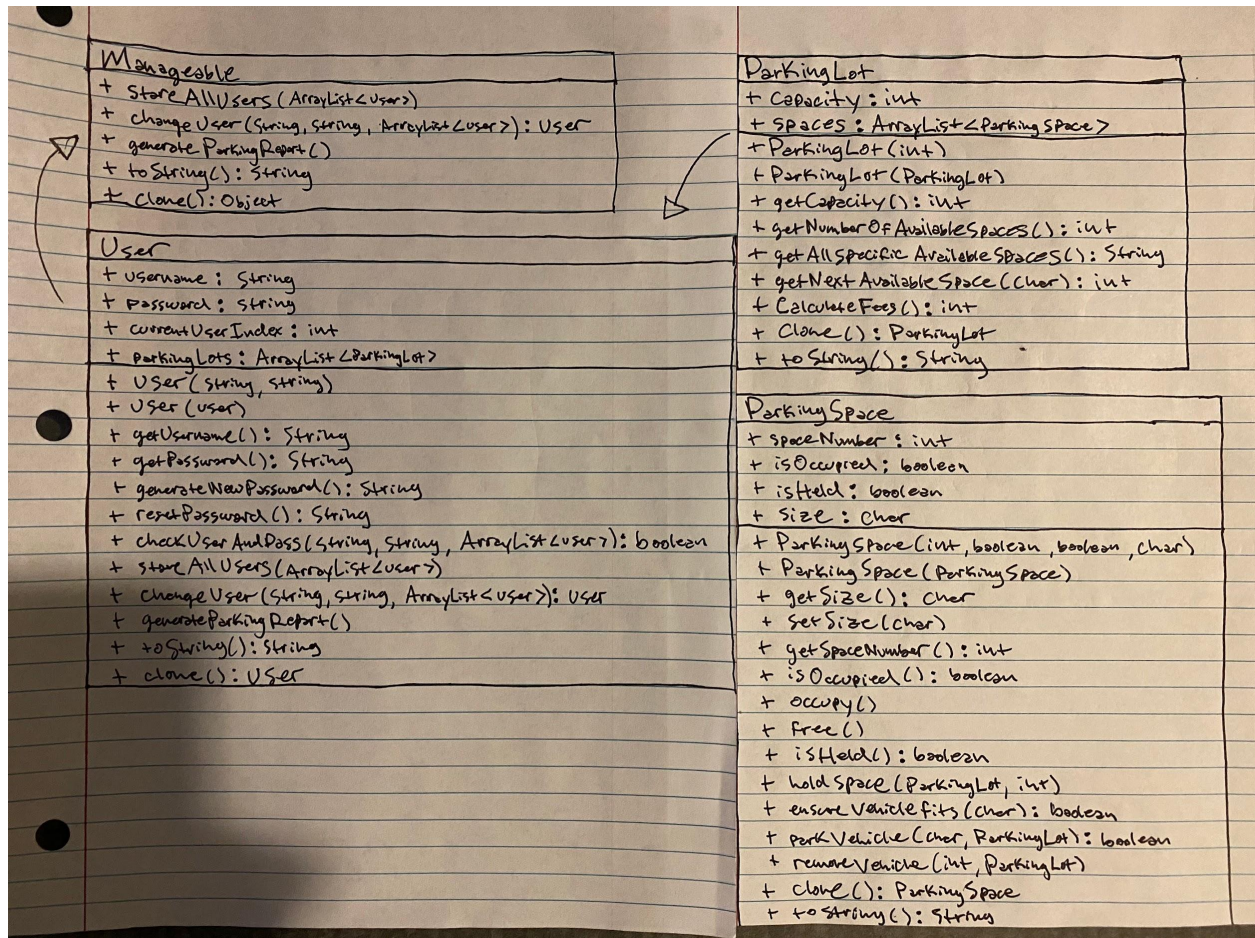 Manageable
+ storeAllUsers(ArrayList<User>)
+ changeUser(String, String, ArrayList<User>): User
+ generateParkingReport()
+ toString(): String
+ clone(): Object
User
+ username: String
+ password: String
+ currentUserIndex: int
+ parkingLots: ArrayList<ParkingLot>
+ User(String, String)
+ User(User)
+ getUsername(): String
+ getPassword(): String
+ generateNewPassword(): String
+ resetPassword(): String
+ checkUserAndPass(String, String, ArrayList<User>): boolean
+ storeAllUsers(ArrayList<User>)
+ changeUser(String, String, ArrayList<User>): User
+ generateParkingReport()
+ toString(): String
+ clone(): User
ParkingLot
+ capacity: int
+ spaces: ArrayList<ParkingSpace>
+ ParkingLot(int)
+ ParkingLot(ParkingLot)
+ getCapacity(): int
+ getNumberOfAvailableSpaces(): int
+ getAllSpecificAvailableSpaces(): String
+ getNextAvailableSpace(char): int
+ CalculateFees(): int
+ clone(): ParkingLot
+ toString(): String
ParkingSpace
+ spaceNumber: int
+ isOccupied: boolean
+ isHeld: boolean
+ size: char
+ ParkingSpace(int, boolean, boolean, char)
+ ParkingSpace(ParkingSpace)
+ getSize(): char
+ setSize(char)
+ getSpaceNumber(): int
+ isOccupied(): boolean
+ occupy()
+ free()
+ isHeld(): boolean
+ holdSpace(ParkingLot, int)
+ ensureVehicleFits(char): boolean
+ parkVehicle(char, ParkingLot): boolean
+ removeVehicle(int, ParkingLot)
+ clone(): ParkingSpace
+ toString(): String